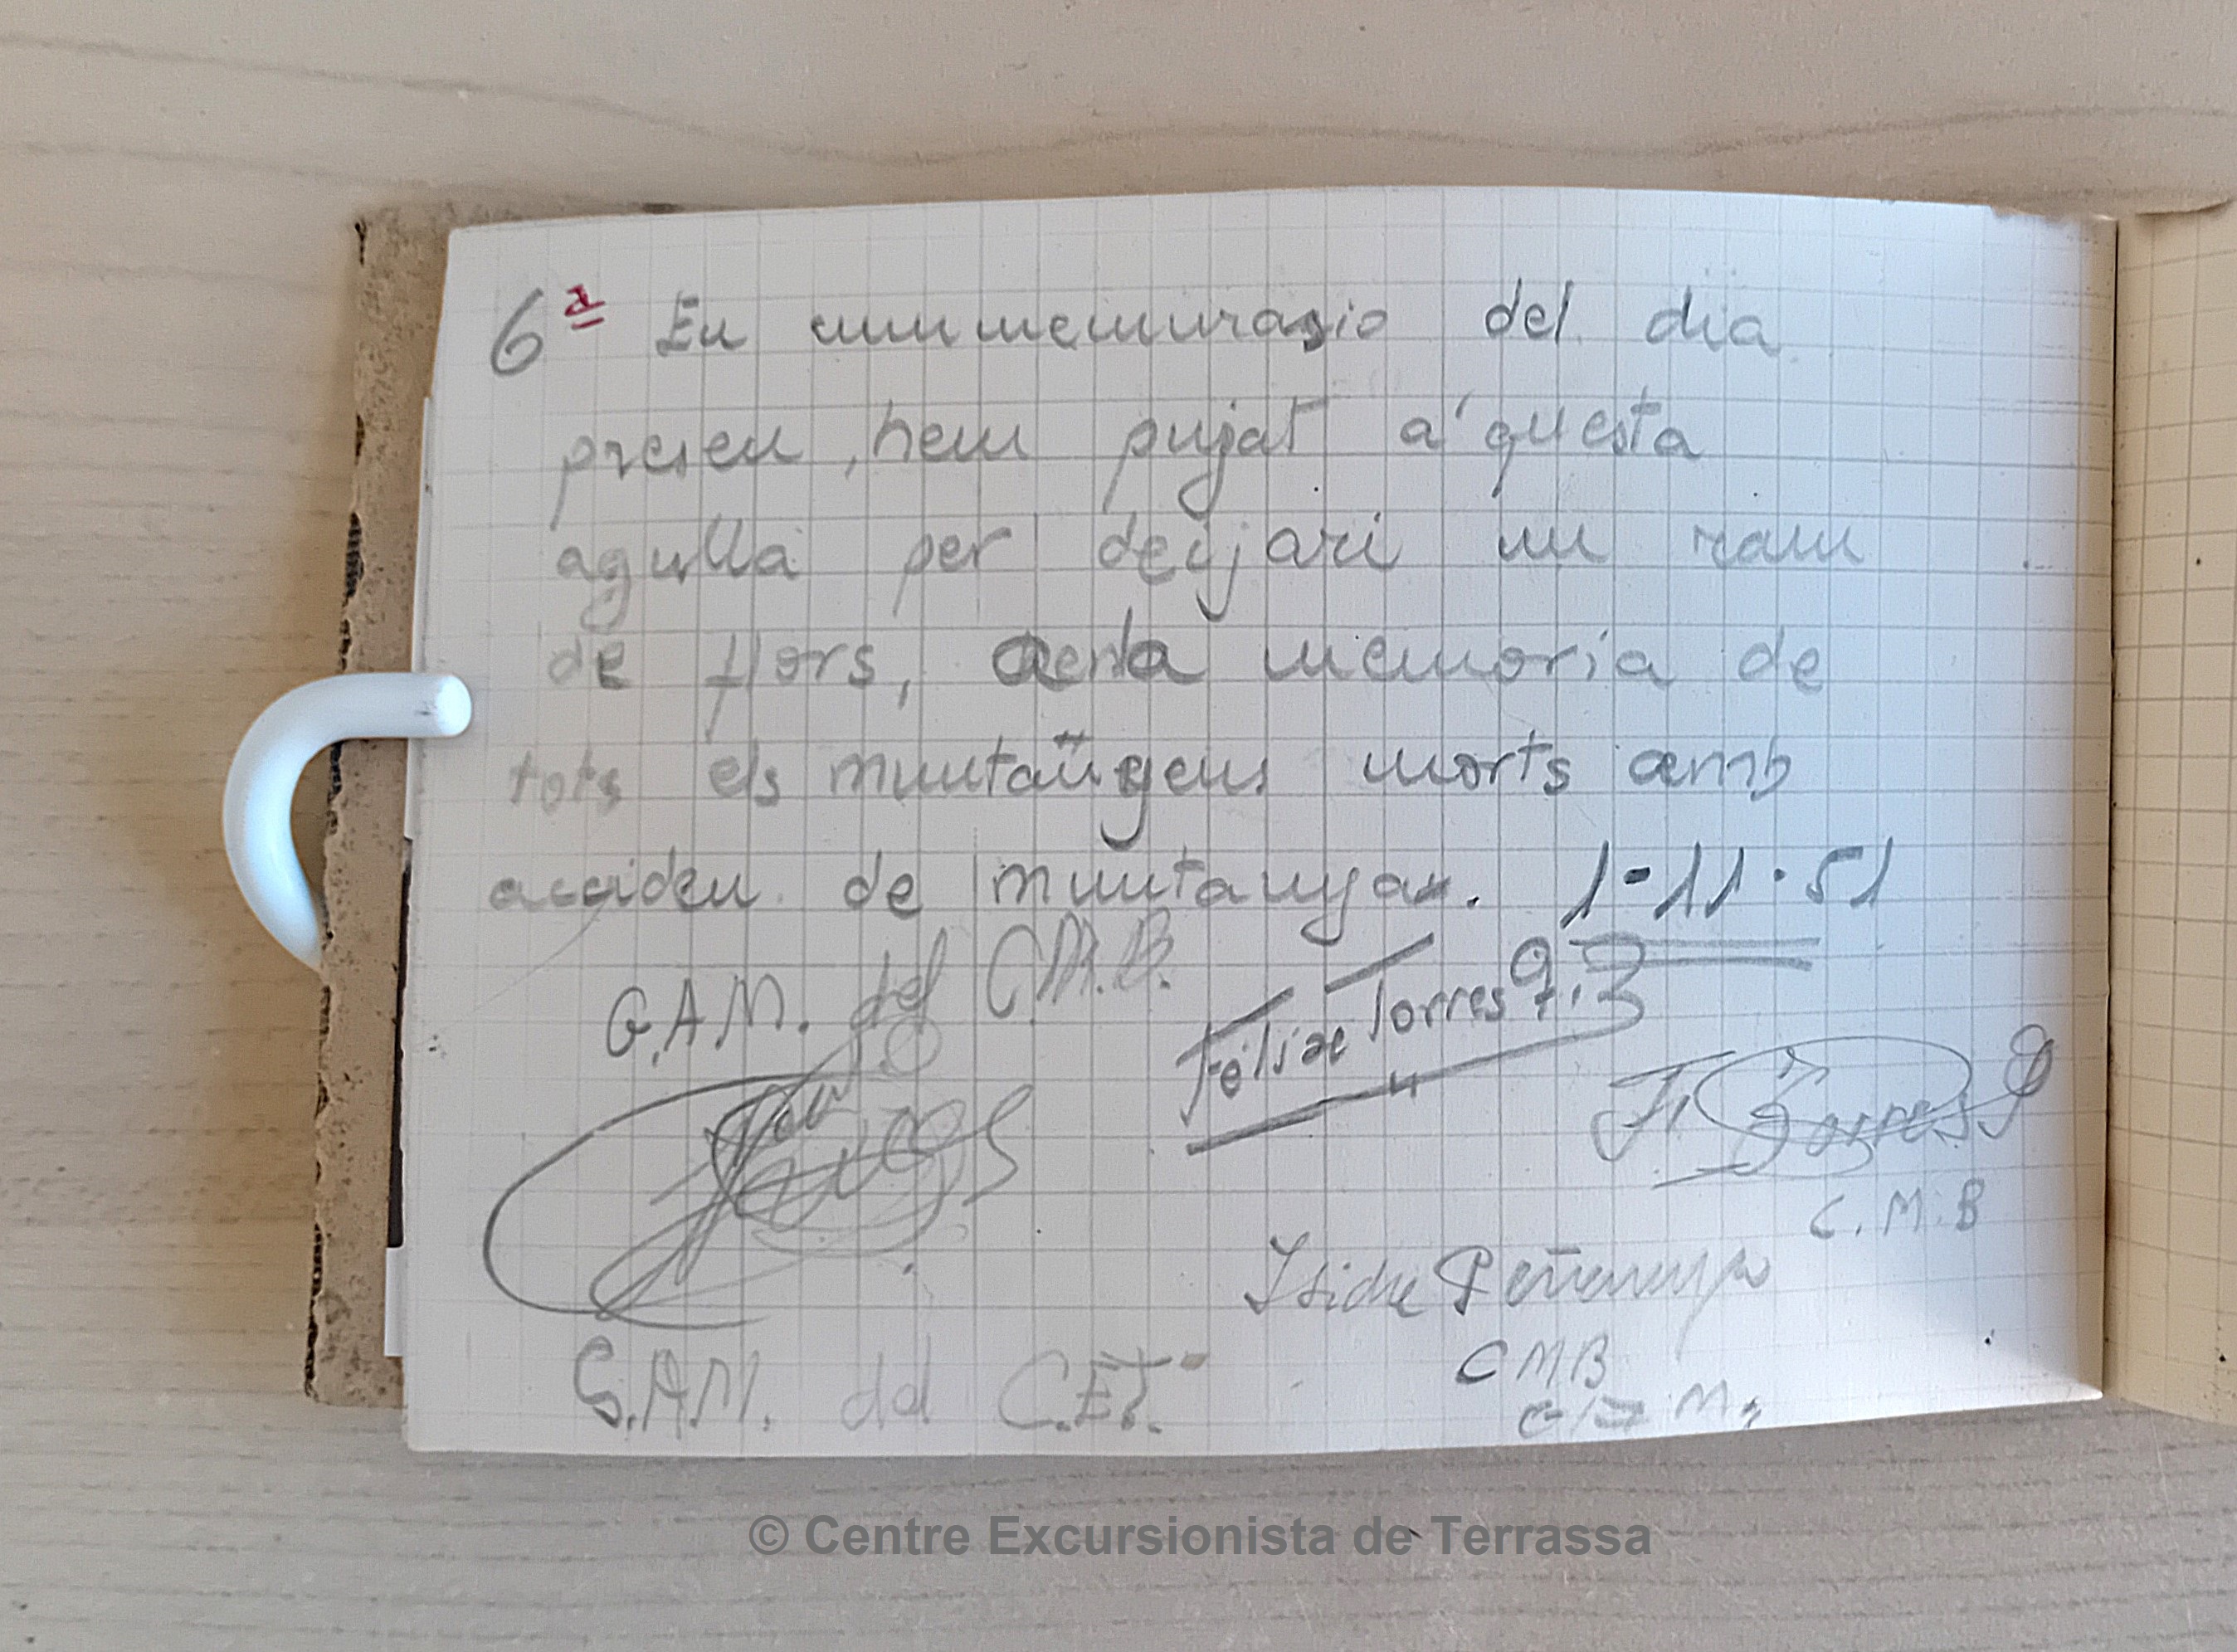 6ª En cummemurasio del dia
presen, hem pujat a'questa
agulla per deijari un ram
de flors, a la memoria de
tots els muntañyens morts amb
acciden de muntanya. 1-11-51
G.A.M. del C.M.B.
Félix Torres
F. Torres
C.M.B
Isidre
CMB
G.A.M. del C.E.T.
© Centre Excursionista de Terrassa